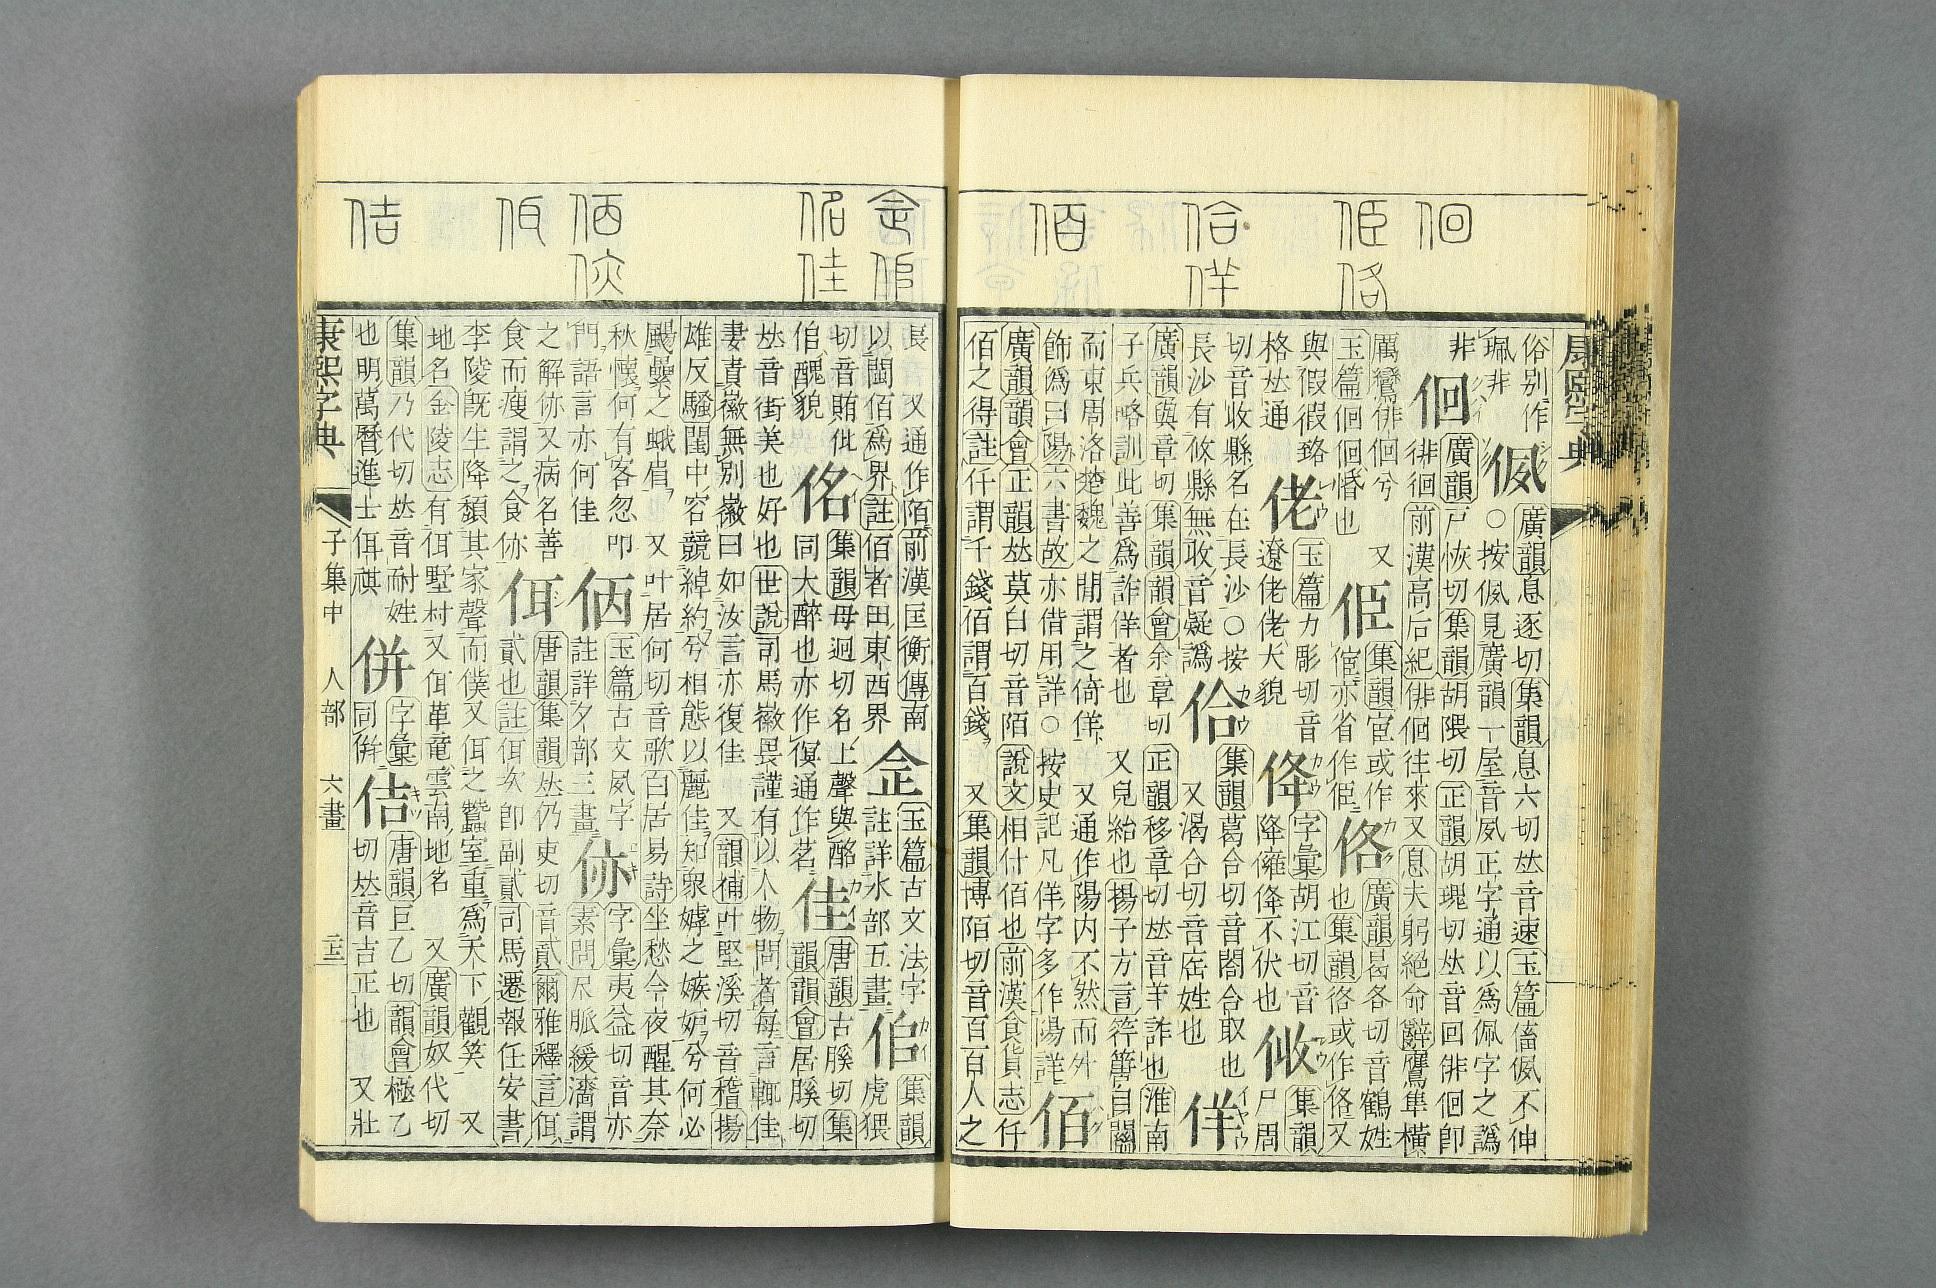 康熙字典
徊
㑌佫
佮佯
佰
俗别作
珮非
㑉
廣韻息逐切集韻息六切𠀤音速玉篇㑉不伸
○按㑉見廣韻一屋音夙正字通以爲佩字之譌
非
徊
廣韻戸恢切集韻胡隈切正韻胡瑰切𠀤音回徘徊卽
徘徊前漢高后紀俳徊往來又息夫躬絕命辭鷹隼橫
厲鸞俳徊兮　又
玉篇徊徊惛也
㑌
集韻宦或作
倌亦省作㑌
佫
廣韻曷各切音鶴姓
也集韻㣟或作佫又
與假徦
格𠀤通
佬
玉篇力彫切音
遼佬佬大貌
佭
字彙胡江切音
降佭不伏也
集韻
尸周
切音收縣名在長沙○按
長沙有攸縣無收音疑譌
佮
集韻葛合切音閤合取也
又渴合切音姓也
佯
廣韻與章切集韻韻會余章切正韻移章切𠀤音羊詐也淮南
子兵略訓此善爲詐佯者也　又兒紿也揚子方言自關
而東周洛楚魏之閒謂之倚佯　又通作陽内不然而外
飾爲曰陽六書故亦借用詳○按史記凡佯字多作陽詳
佰
廣韻韻會正韻𠀤莫白切音陌說文相什佰也前漢食貨志仟
佰之得註仟謂千錢佰謂百錢　又集韻博陌切音百百人之
佲佳
佴
佶
長　又通作陌前漢匡衡傳南
以閩佰爲界註佰者田東西界
佱
玉篇古文法字
註詳水部五畫
集韻
虎猥
切音賄仳
醜貌
佲
集韻母迥切名上聲與酩
同大醉也亦作通作茗
佳
唐韻古膎切集
韻韻會居膎切
𠀤音街美也好也世說司馬徽畏謹有以人物問者每言輒佳
妻責徽無别徽曰如汝言亦復佳　又韻補叶堅溪切音稽揚
雄反騷閨中容競綽約兮相態以麗佳知衆嫭之嫉妒兮何必
颺纍之蛾眉　又叶居何切音歌白居易詩坐愁今夜醒其奈
秋懷何有客忽叩
門語言亦何佳
𠈇
玉篇古文夙字
註詳夕部三畫
㑊
字彙夷益切音亦
素問尺脈緩濇謂
之解㑊又病名善
食而瘦謂之食㑊
佴
唐韻集韻𠀤仍吏切音貳爾雅釋言佴
貳也註佴次卽副貳司馬遷報任安書
李陵旣生降頹其家聲而僕又佴之蠶室重爲天下觀笑　又
地名金陵志有佴墅村又佴革竜雲南地名　又廣韻奴代切
集韻乃代切𠀤音耐姓
也明萬曆進士佴祺
併
字彙
同倂
佶
唐韻巨乙切韻會極乙
切𠀤音吉正也　又壯
康熙字典
子集中　人部　六畫